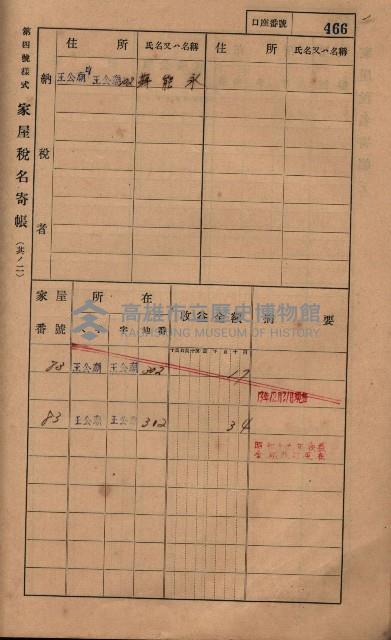 口座番號 466
第四號樣式 家屋稅名寄帳 (其ノ二)
納稅者
住所 氏名又ハ名稱 住所 氏名又ハ名稱
王公廟 王公廟 302 蘇能永
家屋番號 所在 收益金額 摘要
字 地番
高雄市立歷史博物館
KAOHSIUNG MUSEUM OF HISTORY
83 王公廟 王公廟 302 17
83 王公廟 王公廟 312 34